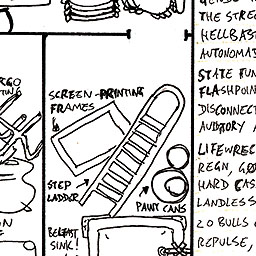 SCREEN-PRINTING
FRAMES
STEP
LADDER
PAINT CANS
BELFAST
SINK!
THE STREE
HELLBAST
AUTONOMA
STATE FUN
FLASHPOIN
DISCONNECT
AUDITORY A
LIFEWREC
REGN, GØ
HARD CAS
LANDLESS
20 BULLS
REPULSE,